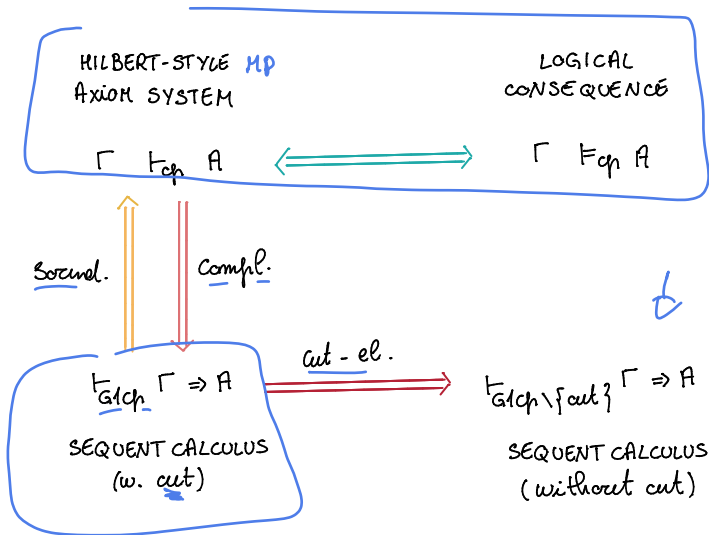 HILBERT-STYLE MP
AXIOM SYSTEM
Γ ⊢cp A
LOGICAL
CONSEQUENCE
Γ ⊨cp A
Sound.
Compl.
cut-el.
⊢G1cp Γ ⇒ A
SEQUENT CALCULUS
(w. cut)
⊢G1cp\{cut} Γ ⇒ A
SEQUENT CALCULUS
(without cut)